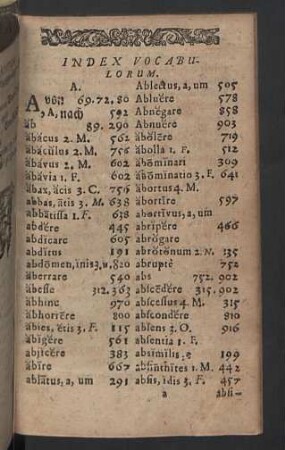 INDEX VOCABU-
LORUM.
A.
A von 69.72.80
A, nach 592
ab 89.290
ăbăcus 2. M. 562
ăbăculus 2. M. 756
ăbăvus 2. M. 602
ăbăvia 1. F. 602
ăbax, ăcis 3. C. 756
abbas, ātis 3. M. 638
abbātissa 1. F. 638
abděre 445
abdicare 605
abdĭtus 191
abdōmen, ĭnis 3. n. 820
aberrare 540
abesse 312.363
ăbhinc 970
abhorrēre 800
ăbies, ĕtis 3. F. 115
ăbĭgěre 561
abjĭcěre 383
ăbīre 667
ablātus, a, um 291
Ablectus, a, um 505
Abluěre 578
Abnĕgare 858
Abnuěre 903
ăbŏlēre 719
ăbolla 1. F. 512
ăbōmĭnari 309
ăbōminatio 3. F. 641
ăbortus 4. M.
ăbortīre 597
ăbortīvus, a, um
abrĭpěre 466
abrŏgare
abrŏtŏnum 2. N. 135
abruptè 752
abs 752.902
abscēděre 315.902
abscessus 4. M. 315
absconděre 810
absens 3. O. 916
absentia 1. F.
absĭmĭlis, e 199
absinthītes 1. M. 442
absis, ĭdis 3. F. 457
a
absi-